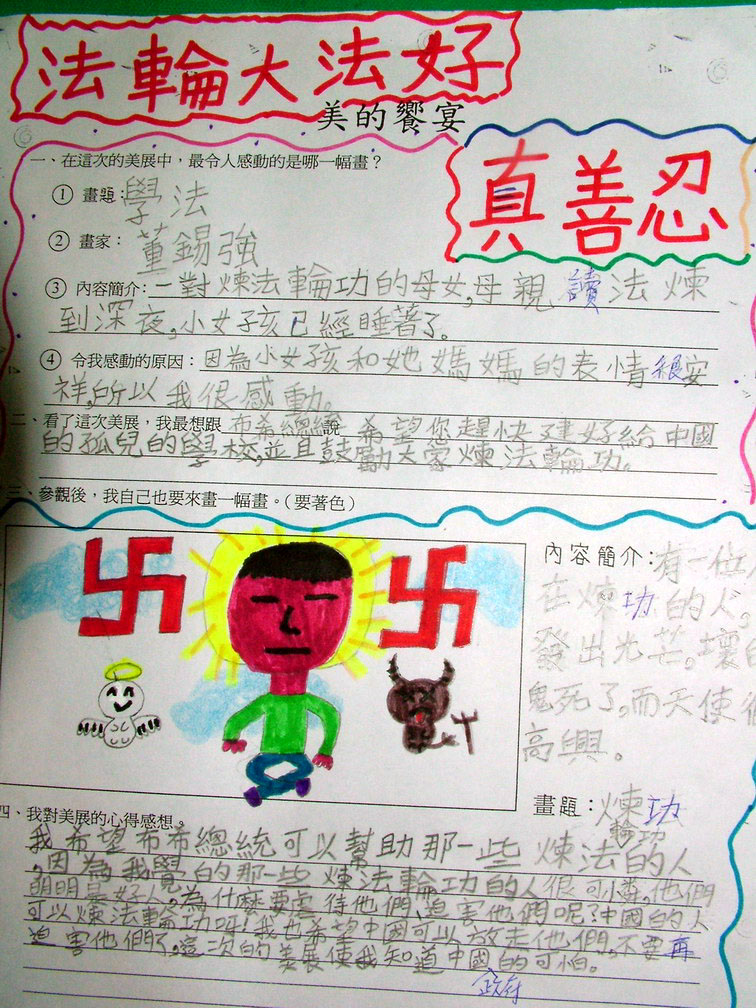 法輪大法好
美的饗宴
真善忍
一、在這次的美展中，最令人感動的是哪一幅畫？
① 畫題：學法
② 畫家：董錫強
③ 內容簡介：一對煉法輪功的母女，母親讀法煉
到深夜，小女孩已經睡著了。
④ 令我感動的原因：因為小女孩和她媽媽的表情很安
祥，所以我很感動。
二、看了這次美展，我最想跟布希總統說 希望您趕快建好給中國
的孤兒的學校，並且鼓勵大家煉法輪功。
三、參觀後，我自己也要來畫一幅畫。（要著色）
內容簡介：有一位
在煉功的人。
發出光芒。壞的
鬼死了，而天使很
高興。
畫題：煉功
輪功
四、我對美展的心得感想。
我希望布希總統可以幫助那一些煉法的人
，因為我覺的那一些煉法輪功的人很可憐，他們
明明是好人，為什麼要虐待他們、迫害他們呢？中國的人
可以煉法輪功呀！我也希望中國可以放走他們，不要再
迫害他們了，這次的美展使我知道中國的可怕。
政府